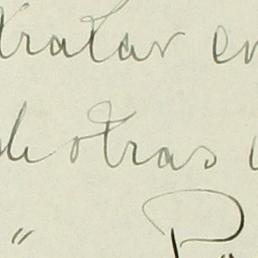 tratar en
de otras
"